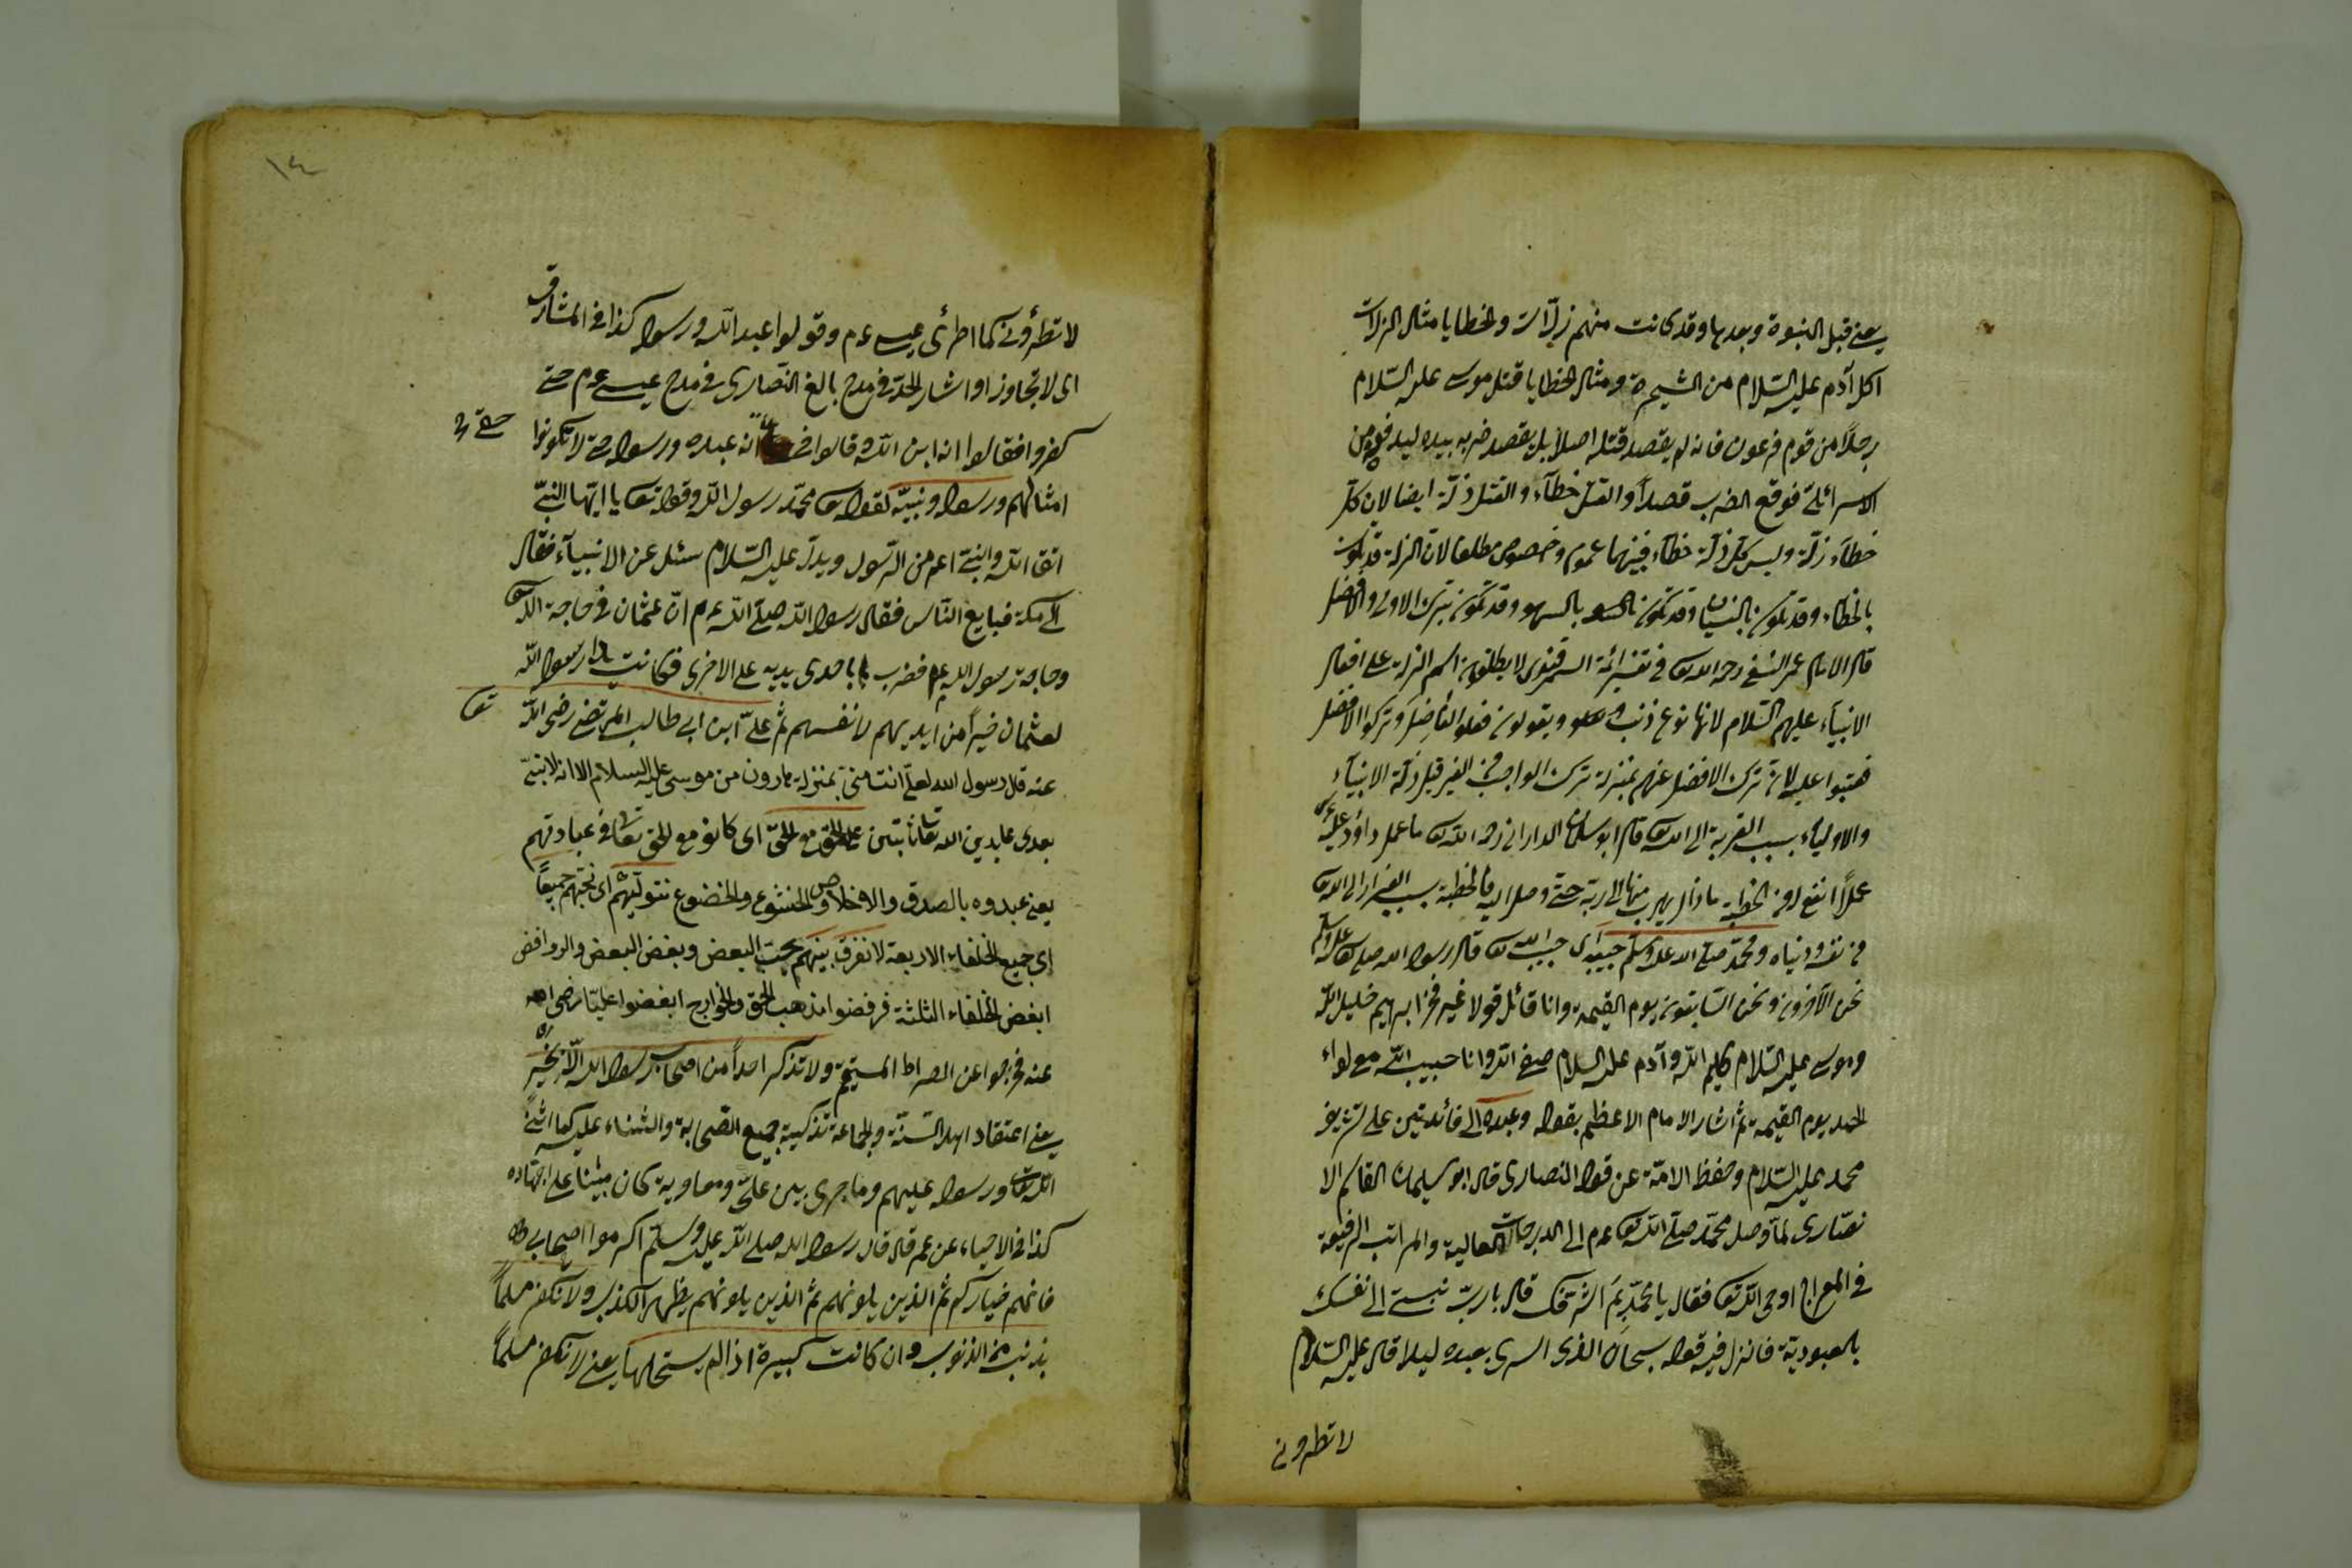 يعنى قبل النبوة وبعدها وقد كانت منهم زلّات والخطايا مثال الزلات
اكل آدم عليه السّلام من الشجرة ومثال الخطايا قتل موسى عليه السّلام
رجلاً من قوم فرعون فانه لم يقصد قتله اصلا بل يقصد ضربه بيده ليدفعه من
الاسرائلى فوقع الضرب قصداً والقتل خطآء والقتل ذلّة ايضا لان كل
خطآء زلّة وليس كل ذلّة خطآء فبينهما عموم وخصوص مطلقا لان الزلة قد تكون
بالخطاء وقد تكون بالنسيان وقد تكون بالسهو وقد تكون بترك الاولى والافضل
قال الامام عمر النسفى رحمه الله تع فى تفسير ائمة السمرقندى لا يطلقون اسم الزلة على افعال
الانبيآء عليهم السّلام لانها نوع ذنب ويقولون فعلوا الفاضل وتركوا الافضل
فعتبوا عليه لان ترك الافضل عنهم بمنزلة ترك الواجب من الغير قيل ذلّة الانبيآء
والاولياء بسبب القربة الى الله تع قال ابو سليمان الدارانى رحمه الله تع ما عمل داؤد عليه
عملاً انفع له من الخطيئة ما زال يهرب منها الى ربه حتى وصل اليه فالخطيئة بسبب الفرار الى الله تع
من نفسه ودنياه ومحمّد صلى الله عليه وسلم حبيبه اى حبيب الله تع قال رسول الله صلى الله تع عليه وسلم
نحن الآخرون ونحن السّابقون يوم القيمة وانا قائل قولا غير فخر ابرهيم خليل الله
وموسى عليه السّلام كليم الله وآدم عليه السلام صفى الله وانا حبيب الله مع لواء
الحمد يوم القيمة ثم اشار الامام الاعظم بقوله وعبده الى فائدتين على تشريف
محمد عليه السّلام وحفظ الامّة عن قول النصارى قال ابو سليمان القاسم الا
نصارى لما وصل محمّد صلى الله تع عم الى الدرجات العالية والمراتب الرفيعة
فى المعراج اوحى الله تع فقال يا محمّد بم اشرفك قال يا ربّ نسبتى الى نفسك
بالعبودية فانزل فيه قوله سبحان الذى اسرى بعبده ليلا قال عليه السّلام
لا تطرونى
١٤
لا تطرؤنى كما اطرئ عيسى عم وقولوا عبد الله ورسوله كذا فى المشارق
اى لا تجاوزوا الحدّ فى مدح بالغ النّصارى فى مدح عيسى عم حتى
كفروا فقالوا انه ابن الله قالوا فى انه عبده ورسوله حتى لا تكونوا
امثالهم ورسوله ونبيّه لقوله تع محمّد رسول الله وقوله تع يا ايّها النبىّ
اتق الله والنبى اعم من الرّسول ويدلّ عليه السّلام سئل عن الانبيآء فقال
الى مكة فبايع النّاس فقال رسول الله صلى الله عم انّ عثمان فى حاجة الله تع
وحاجة رسول الله عم فضرب باحدى يديه على الاخرى فكانت يد رسول الله
لعثمان خيراً من ايديهم لانفسهم ثم علىّ ابن ابى طالب المرتضى رضى الله تع
عنه قل رسول الله لعلىّ انت منّى بمنزلة هارون من موسى عليه السلام الا انه لا نبىّ
بعدى عابدين الله تعا ثابتين على الحق مع الحقّ اى كانوا مع الحق تعا فى عبادتهم
يعنى عبدوه بالصدق والاخلاص والخشوع والخضوع نتوليهم اى نحبّهم جميعًا
اى جميع الخلفاء الاربعة لا نفرق بينهم بحبّ البعض وبغض البعض والروافض
ابغض الخلفاء الثلثة فرفضوا مذهب الحق والخوارج ابغضوا عليّا رضى الله
عنه فخرجوا عن الصراط المستقيم ولا تذكر احداً من اصحاب رسول الله الّا بخير
يعنى اعتقاد اهل السنّة والجماعة تذكية جميع الصّحابة والثناء عليه كما اثنى
الله تعا ورسوله عليهم وما جرى بين علىّ ومعاوية كان مبنيا على اجتهاده
كذا فى الاحياء عن عمر قال قال رسول الله صلى الله عليه وسلّم اكرموا اصحابى
فانهم خياركم ثم الذين يلونهم ثم الذين يلونهم يظهر الكذب ولا نكفر مسلماً
بذنب من الذنوب وان كانت كبيرة اذا لم يستحلها يعنى لا نكفر مسلماً